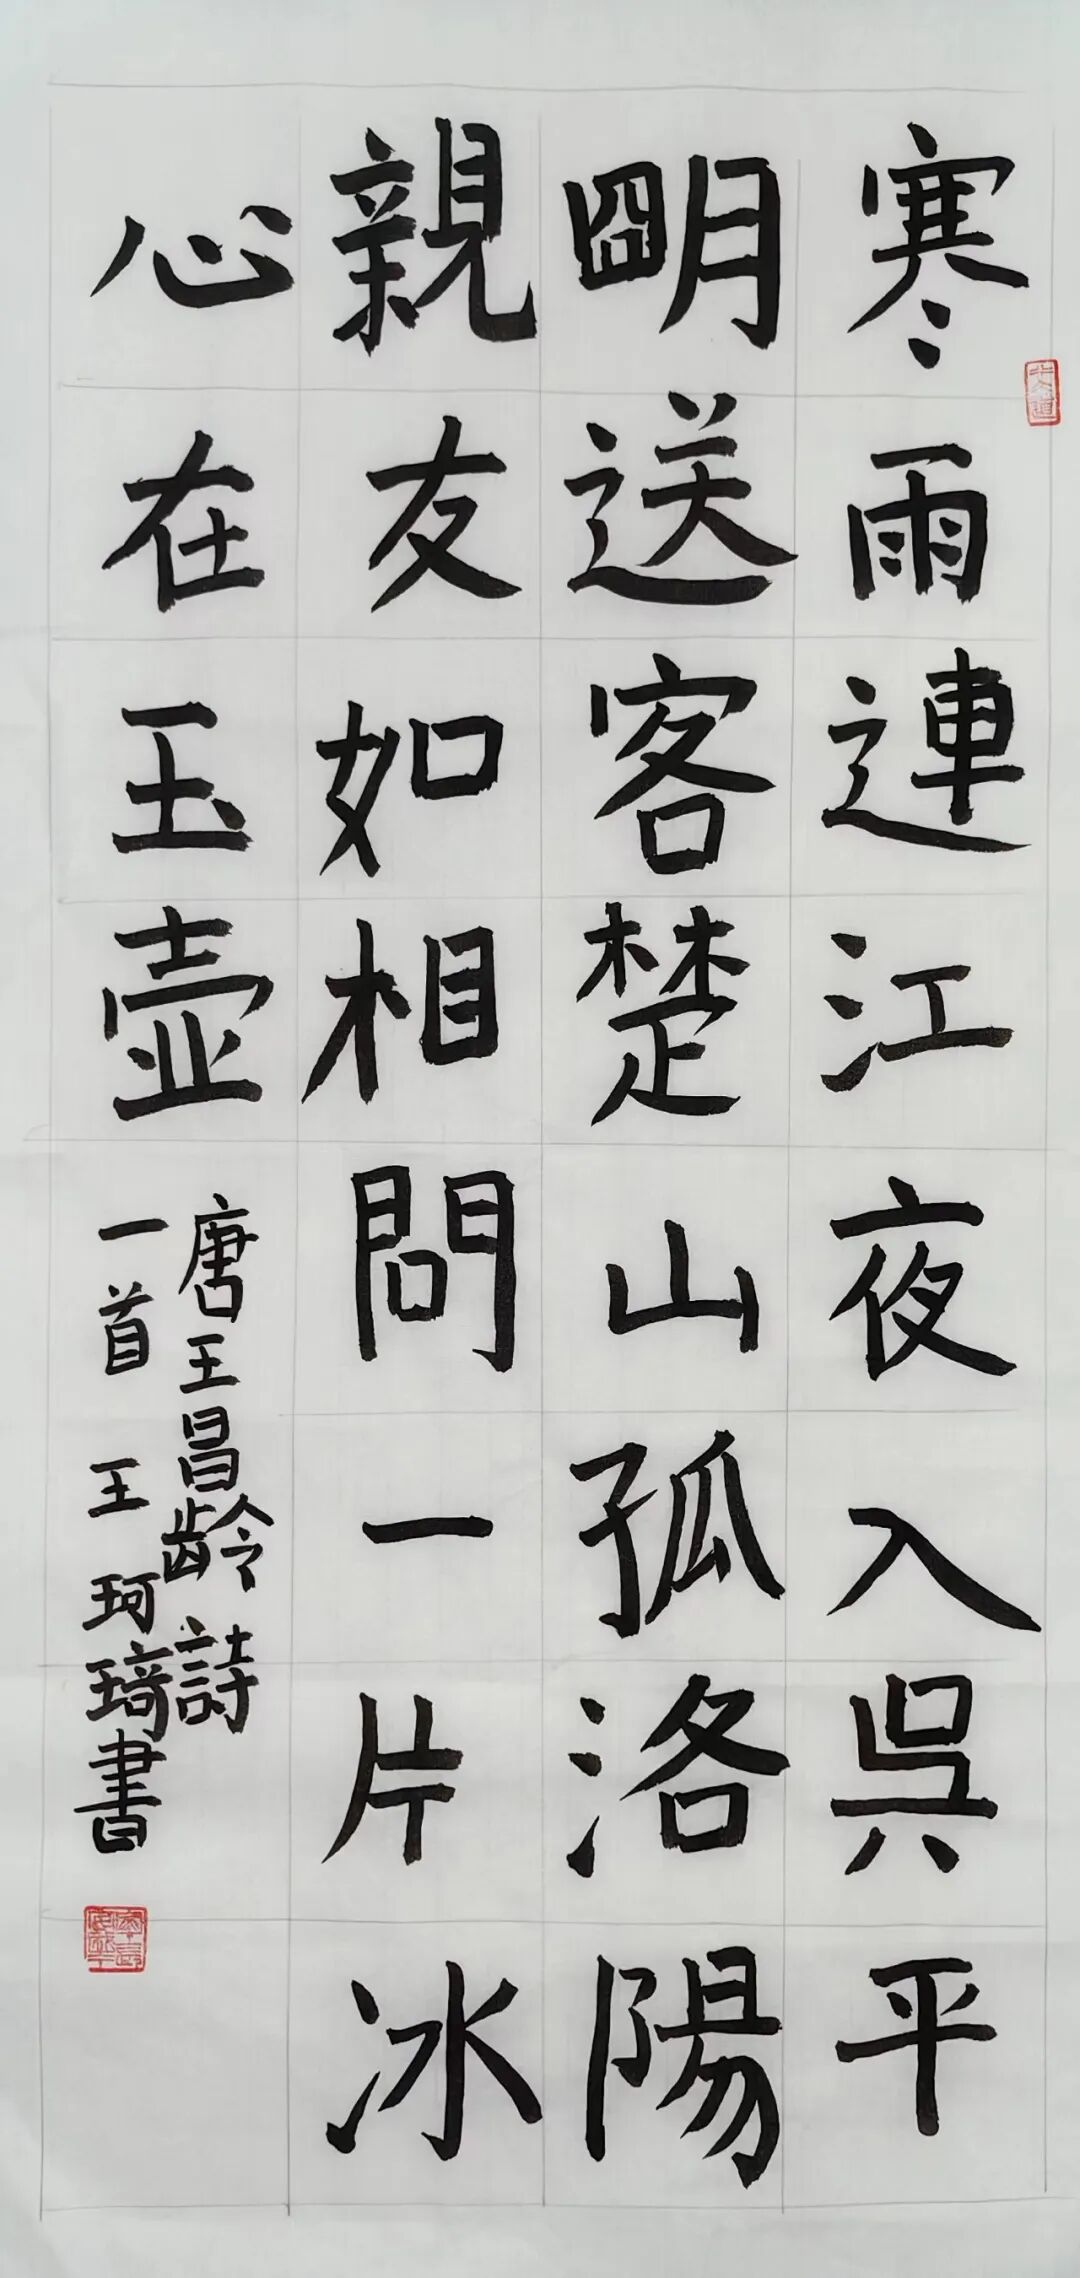 寒雨連江夜入吳平
朙送客楚山孤洛陽
親友如相問一片冰
心在玉壺
唐王昌龄詩
一首 王珂琦書